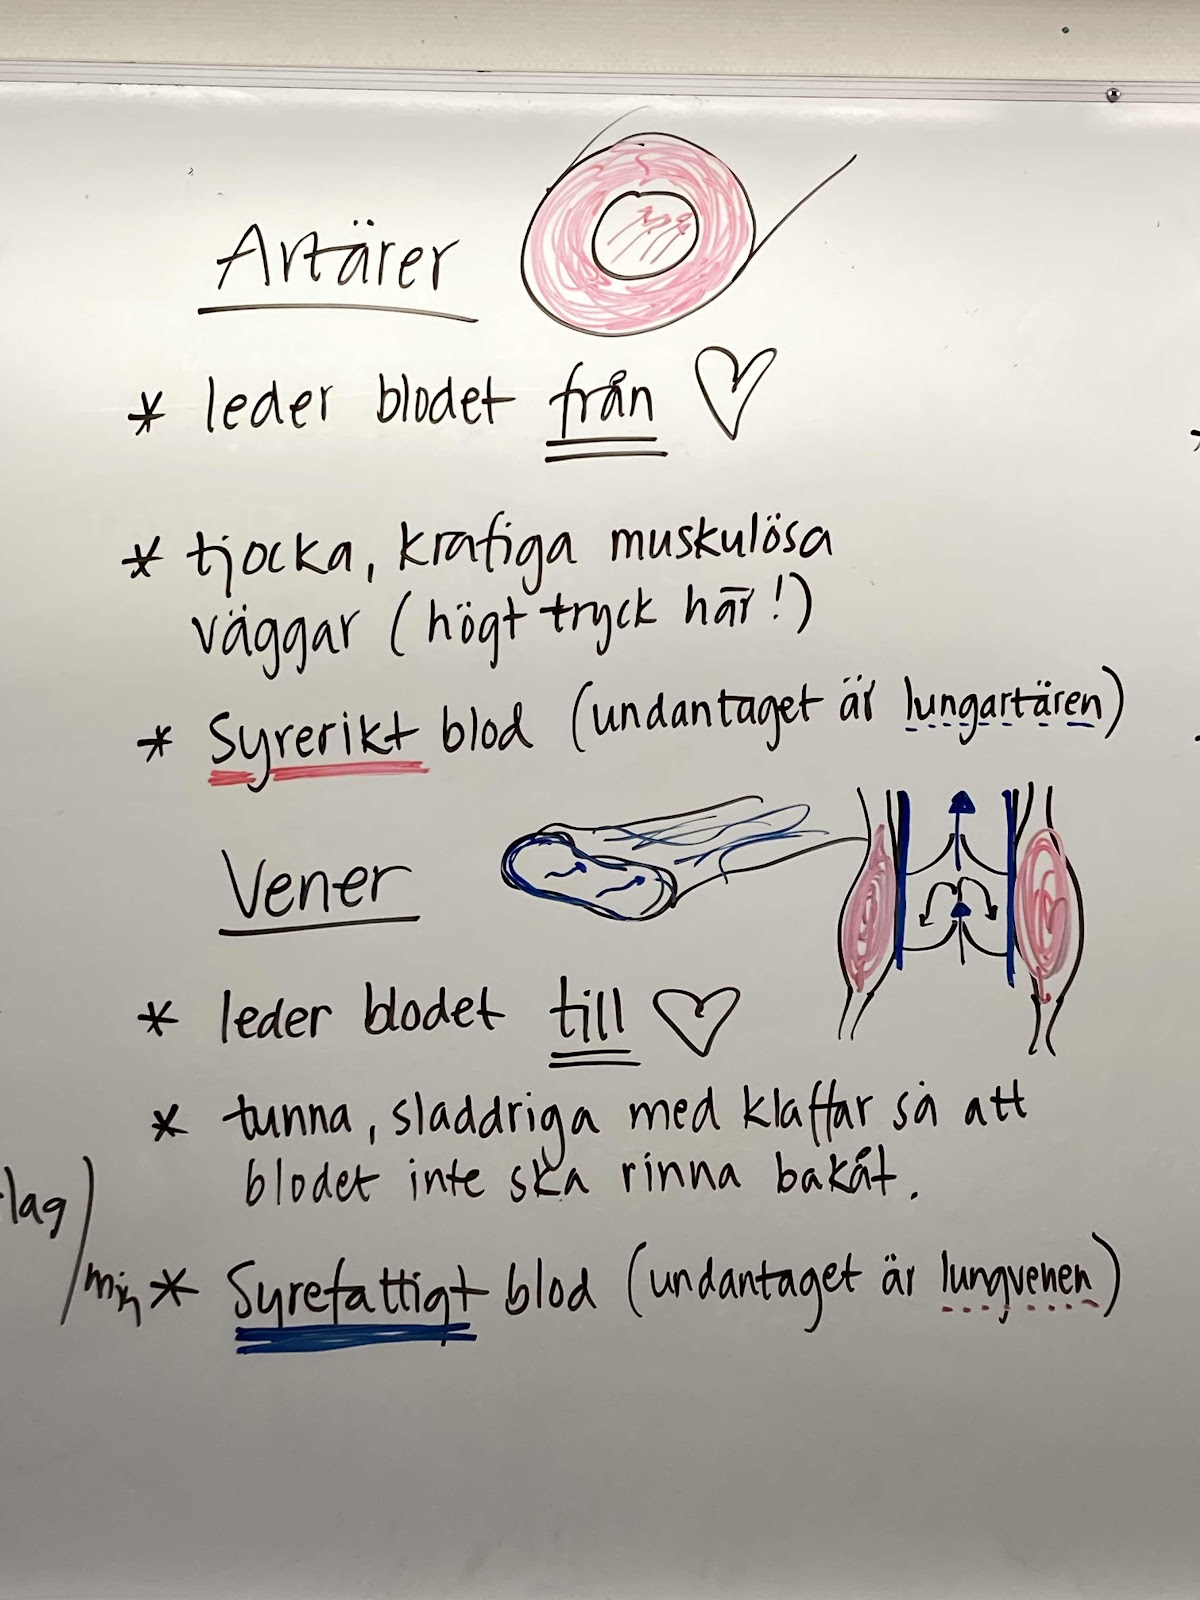 Artärer
* leder blodet från ♡
* tjocka, kraftiga muskulösa
väggar (högt tryck här!)
* Syrerikt blod (undantaget är lungartären)
Vener
* leder blodet till ♡
* tunna, sladdriga med klaffar så att
blodet inte ska rinna bakåt.
lag/min
* Syrefattigt blod (undantaget är lungvenen)